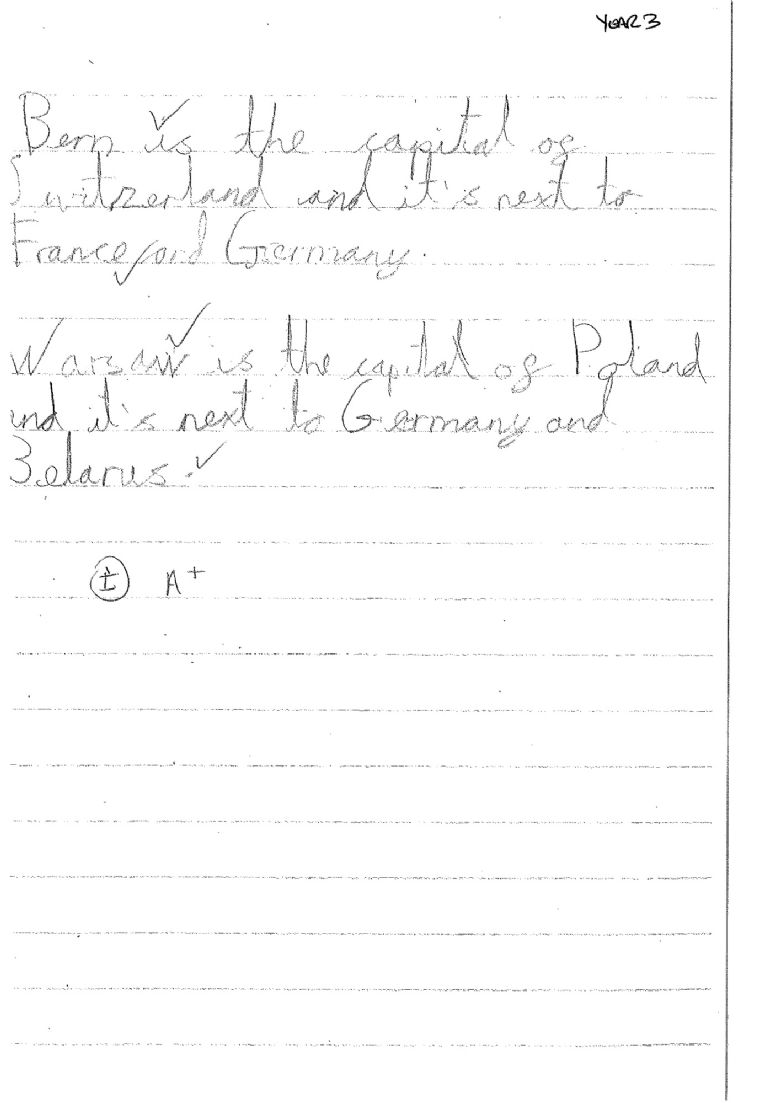 YEAR 3
Bern is the capital of
Switzerland and it's next to
France and Germany.
Warsaw is the capital of Poland
and it's next to Germany and
Belarus.
I A+